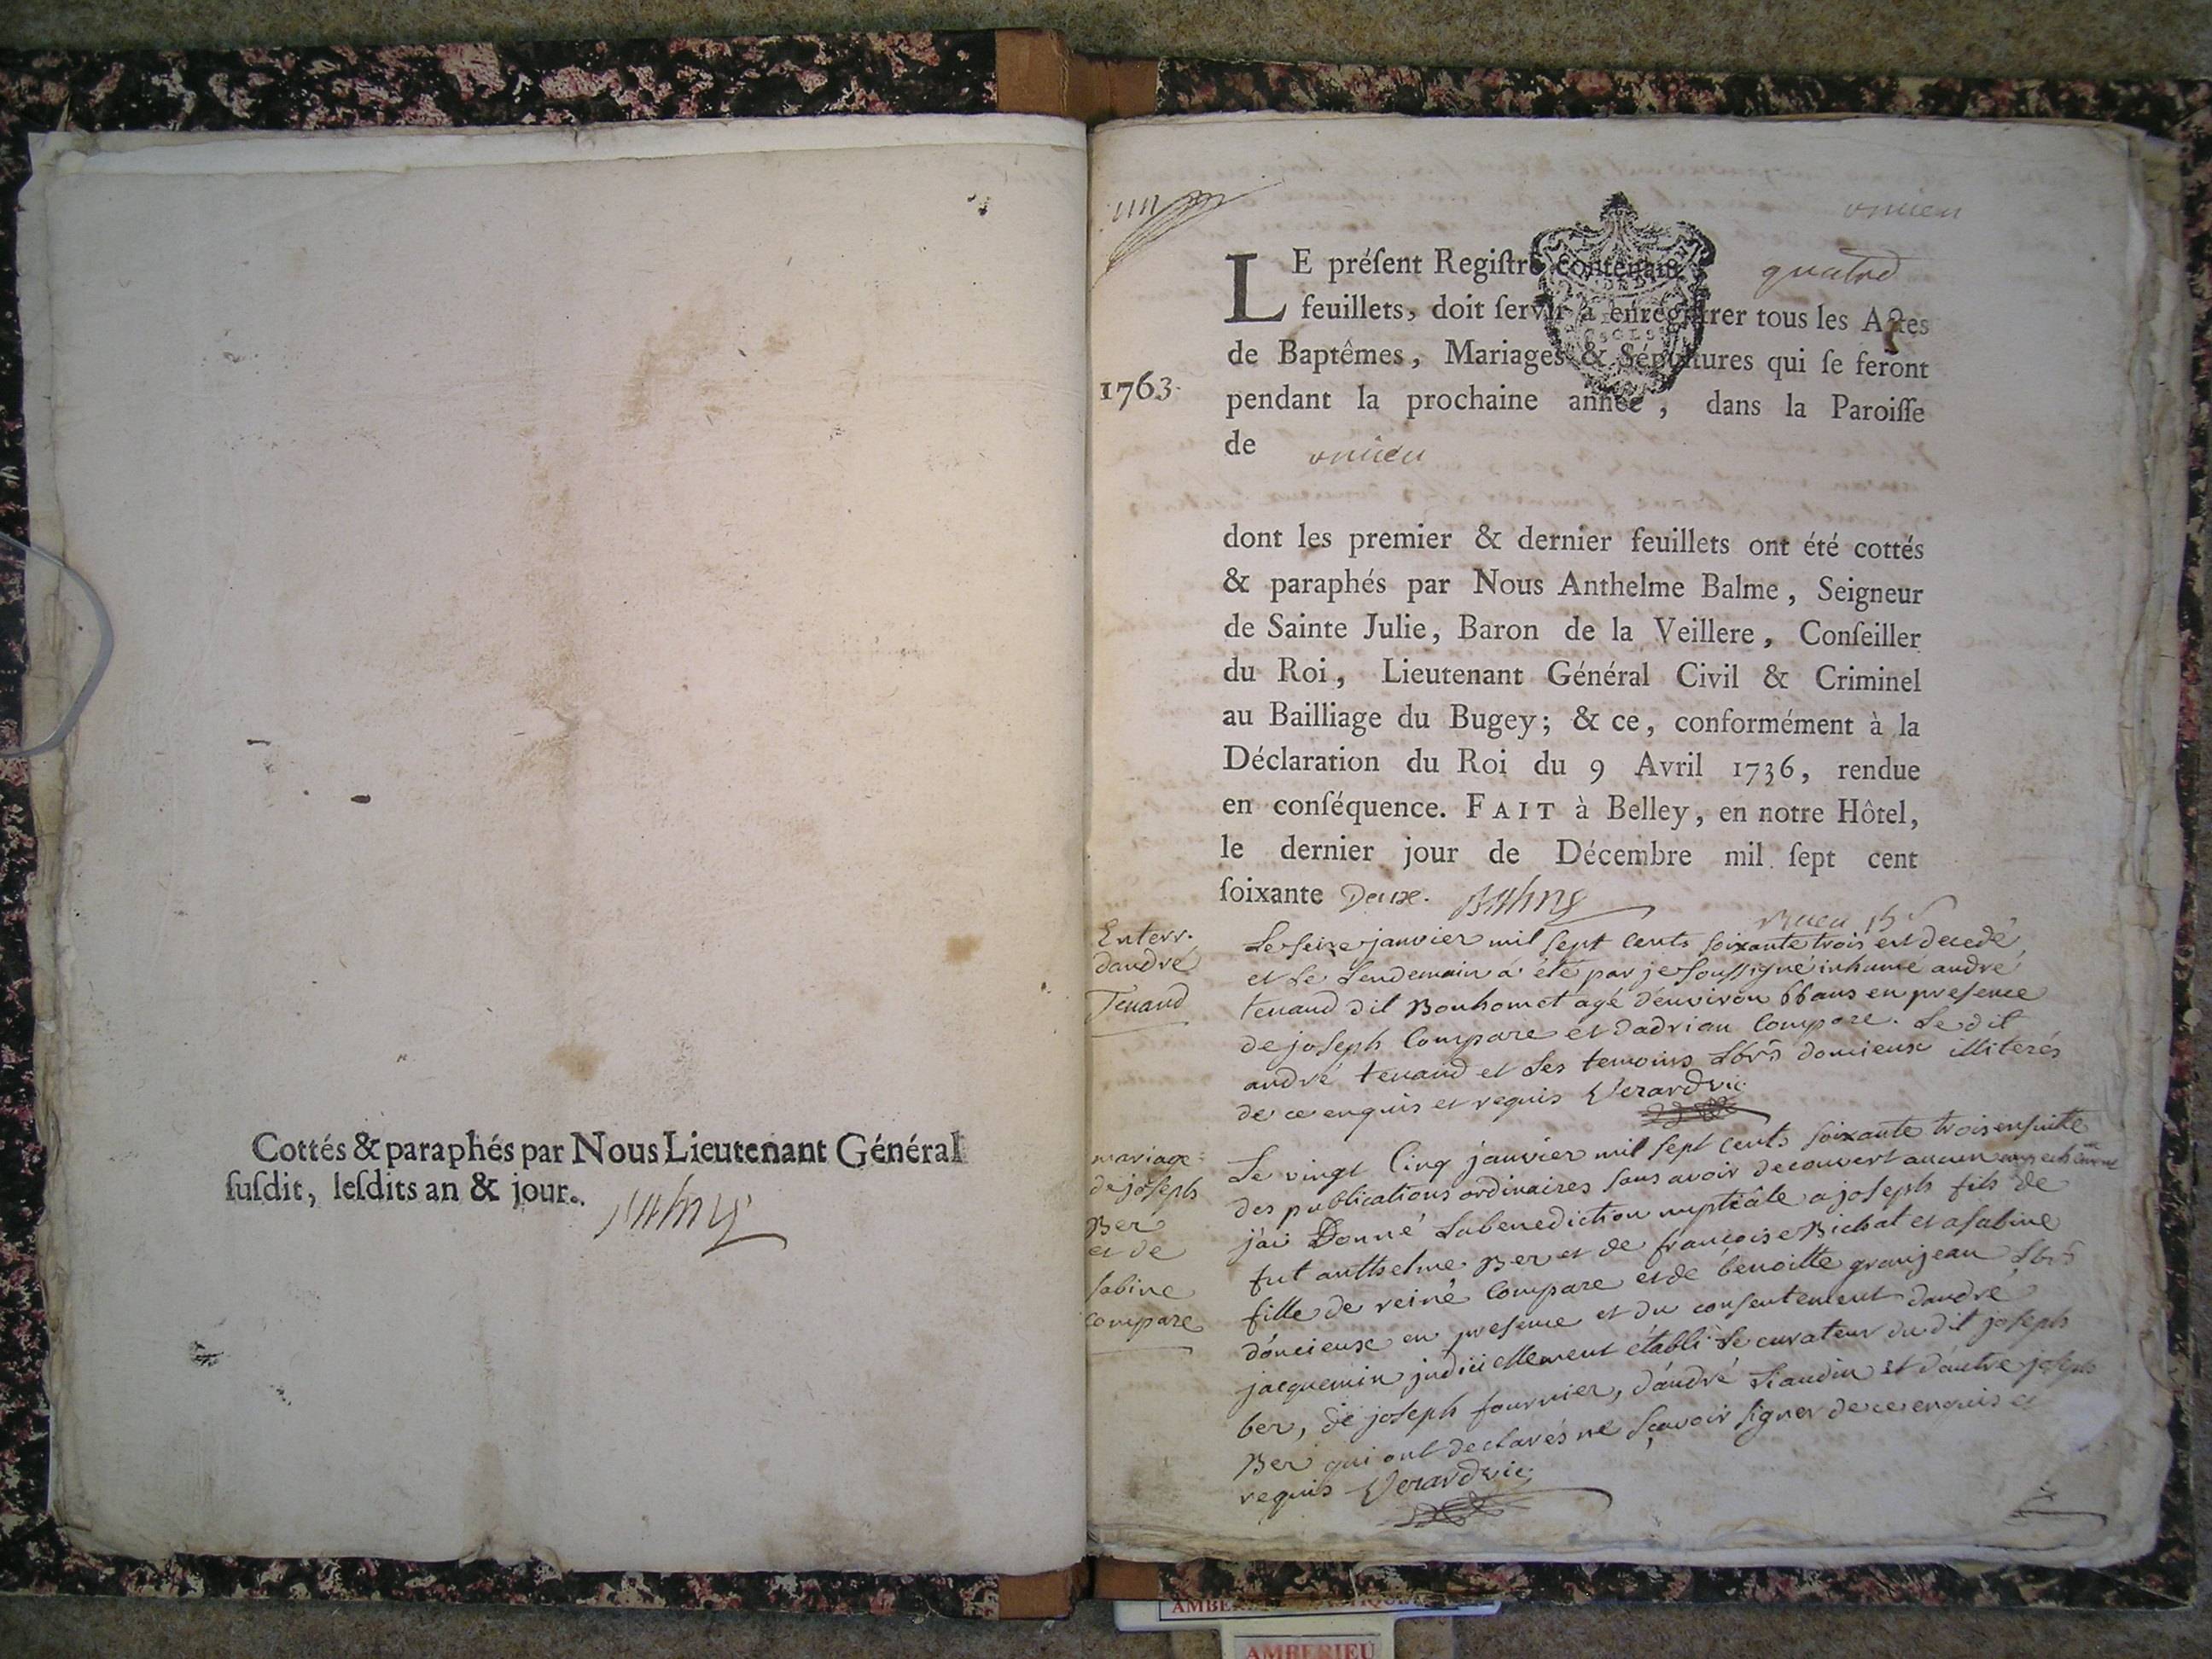 Cottés & paraphés par Nous Lieutenant Général
ſuſdit, leſdits an & jour.
onnieu
LE préſent Regiſtre contenant quatre
feuillets, doit ſervir à enregiſtrer tous les Actes
de Baptêmes, Mariages & Sépultures qui ſe feront
1763.
pendant la prochaine année, dans la Paroiſſe
de onnieu
dont les premier & dernier feuillets ont été cottés
& paraphés par Nous Anthelme Balme, Seigneur
de Sainte Julie, Baron de la Veillere, Conſeiller
du Roi, Lieutenant Général Civil & Criminel
au Bailliage du Bugey; & ce, conformément à la
Déclaration du Roi du 9 Avril 1736, rendue
en conſéquence. FAIT à Belley, en notre Hôtel,
le dernier jour de Décembre mil ſept cent
ſoixante Deux.
Enterr.
dandré
Tenand
Le seize janvier mil sept cents soixante trois est decedé
et le lendemain a été par je soussigné inhumé andré
tenand dit Bonhomet agé d'environ 66 ans en presence
de joseph Compare et dadrian Compare. Le dit
andré tenand et les temoins doncieux illiterés
de ce enquis et requis Verard vic.
mariage
de joseph
Ber
et de
sabine
compare
Le vingt Cinq janvier mil sept cents soixante trois ensuitte
des publications ordinaires sans avoir decouvert aucun empechement
j'ai Donné la benediction nuptiale a joseph fils de
fut anthelme Ber et de françoise Bichat et a sabine
fille de reiné Compare et de benoitte granjean
doncieux en presence et du consentement dandré
jacquemin judiciellement établi le curateur du dit joseph
ber, de joseph fournier, d'andré Liaudin et d'autre joseph
Ber qui ont declarés ne sçavoir signer de ce enquis et
requis Verard vic.
AMBERIEU